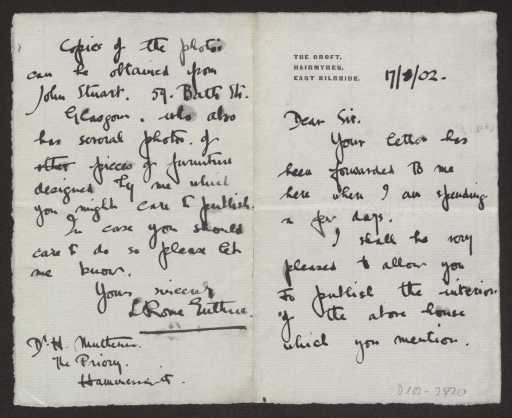 THE CROFT,
HAIRMYRES,
EAST KILBRIDE.
17/8/02.
Dear Sir.
Your letter has
been forwarded to me
here when I am spending
a few days.
I shall be very
pleased to allow you
to publish the interior
of the above house
which you mention.
Copies of the photos
can be obtained from
John Stuart. 59. Bath St.
Glasgow. who also
has several photos. of
other pieces of furniture
designed by me which
you might care to publish.
In case you should
care to do so please let
me know.
Yours sincerely
L Rome Guthrie.
Dr H. Muthesius
The Priory.
Hammersmith.